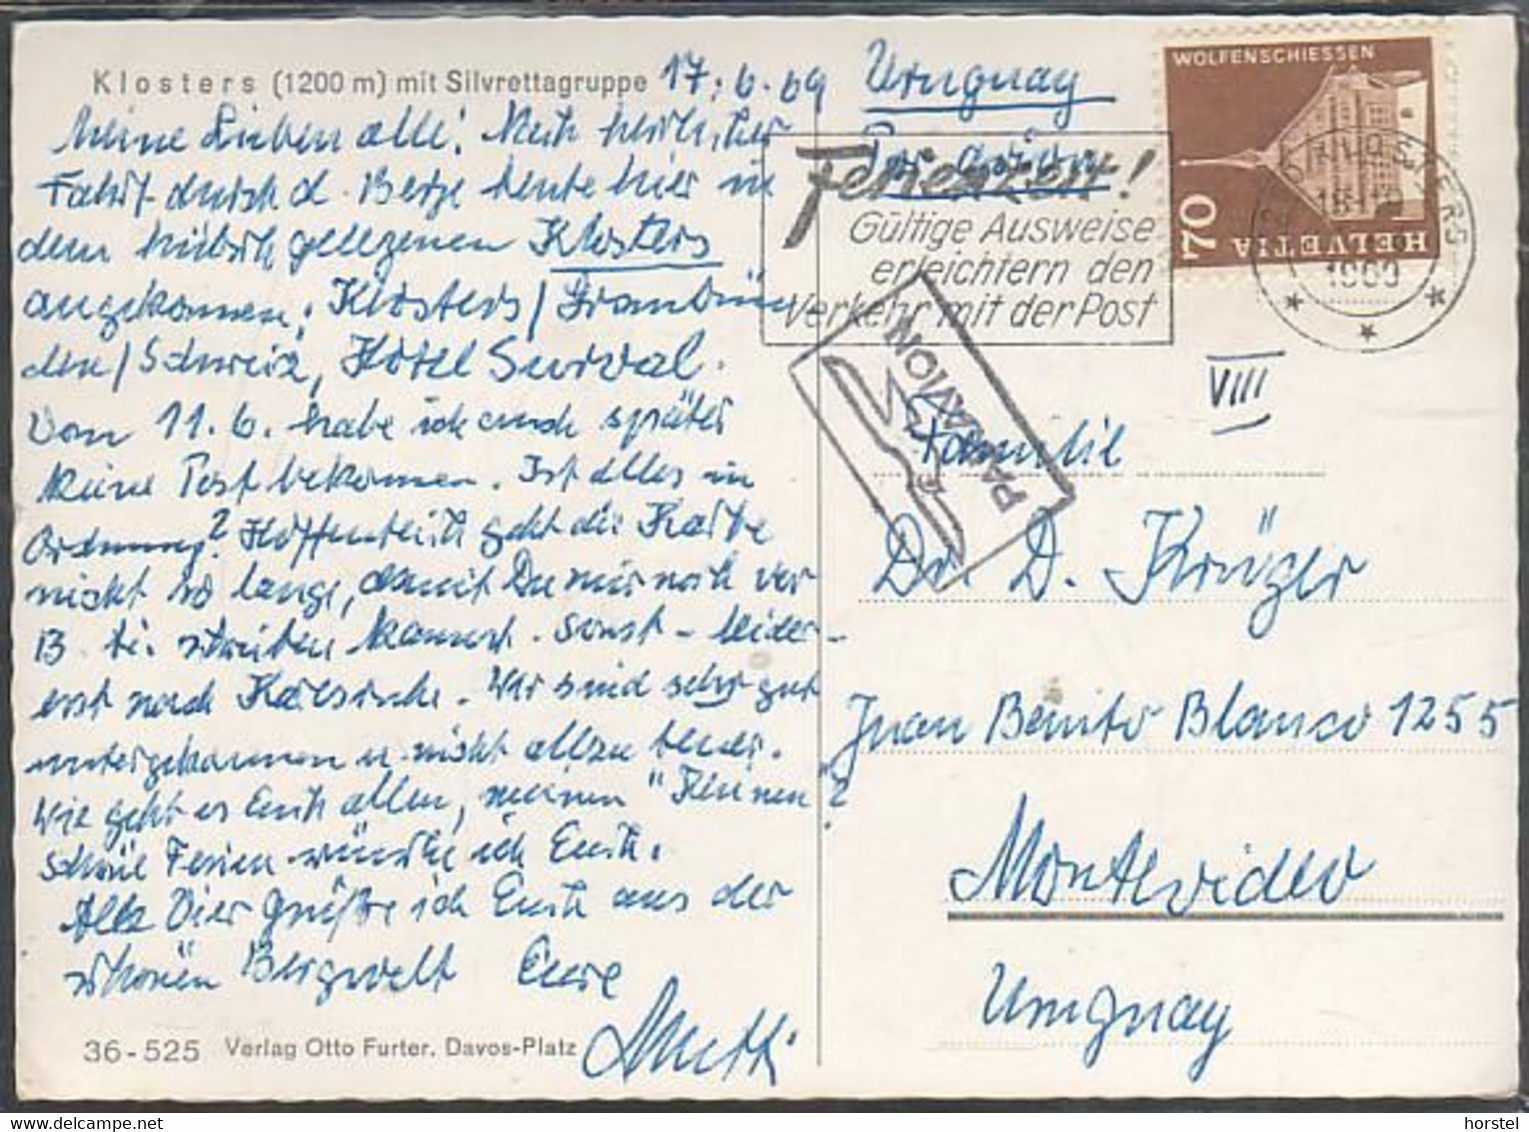 Klosters (1200 m) mit Silvrettagruppe 17.6.69
Meine Lieben alle! Nach herrlicher
Fahrt durch d. Berge heute hier in
dem hübsch gelegenen Klosters
angekommen; Klosters/Graubün
den/Schweiz, Hotel Surval.
Vom 11.6. habe ich auch später
keine Post bekommen. Ist alles in
Ordnung? Hoffentlich geht die Karte
nicht so lange, damit Du mir noch
schreiben kannst. Sonst - leider -
erst nach Karlsruhe. Wir sind sehr gut
untergekommen u. nicht allzu teuer.
Wie geht es Euch allen, meinen "Kleinen?
Schöne Ferien wünsche ich Euch.
Alle Vier grüße ich Euch aus der
schönen Bergwelt Eure
Mutti
36-525 Verlag Otto Furter, Davos-Platz
Uruguay
Par avion
Ferienzeit!
Gültige Ausweise
erleichtern den
Verkehr mit der Post
WOLFENSCHIESSEN
70
HELVETIA
KLOSTERS
1969
PAR AVION
VIII
Familie
Dr. D. Krüger
Juan Benito Blanco 1255
Montevideo
Uruguay
horstel